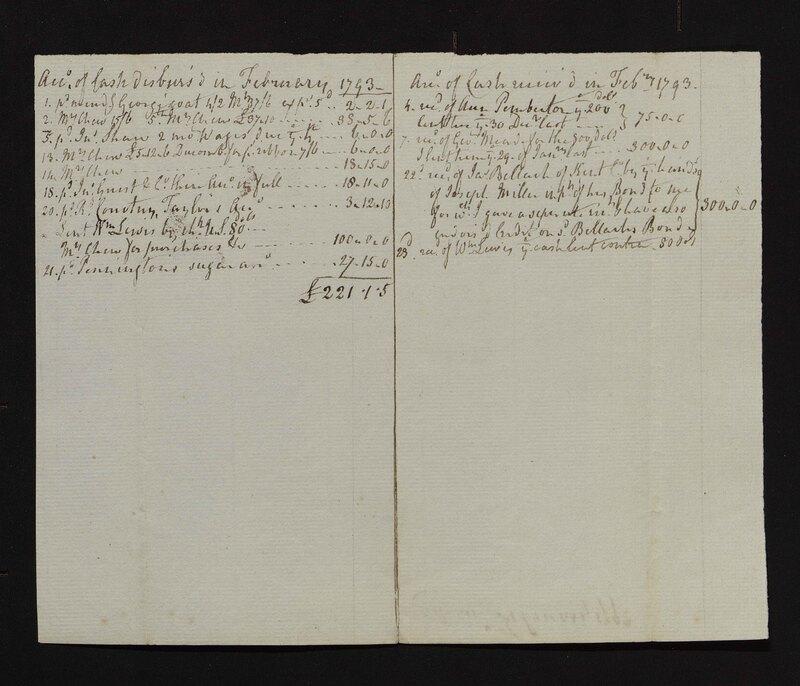 Acco. of Cash disburs'd in February 1793
1. pd mendg George's coat 4/2 Mrs 37/6 exps. 5d 2-2-1
2. Mrs Chew 15/6 Mrs Chew £37-10 38-5-6
5. pd Jno. Shaw 2 mo wages due 6-0-0
13. Mrs Chew £5-12-6 for ribbon 7/6 6-0-0
14. Mrs Chew 18-15-0
18. pd Jno. Guest & Co. their Acco. in full 18-11-0
20. pd Rd Courtney Taylors Acco. 3-12-10
" Lent Wm Lewis by ch. 80 dols
Mrs Chew for purchases &c 100-0-0
21. pd Penningtons sugar acco. 27-15-0
£221-1-5
Acco. of Cash receiv'd in Feby 1793.
4. recd of Ann Pemberton ye 200 dols
lent her ye 30 Decr last 75-0-0
7. recd of Geo. Mead for the 800 dols
I lent him ye 29 of Janry last 300-0-0
22. recd of Jas. Bellach of Kent by ye hands
of Joseph Miller in pt of his Bond to me
for wch I gave a separate & have also
endors'd Credit on sd Bellachs Bond 300-0-0
23. recd of Wm Lewis ye cash lent contra 80 dols